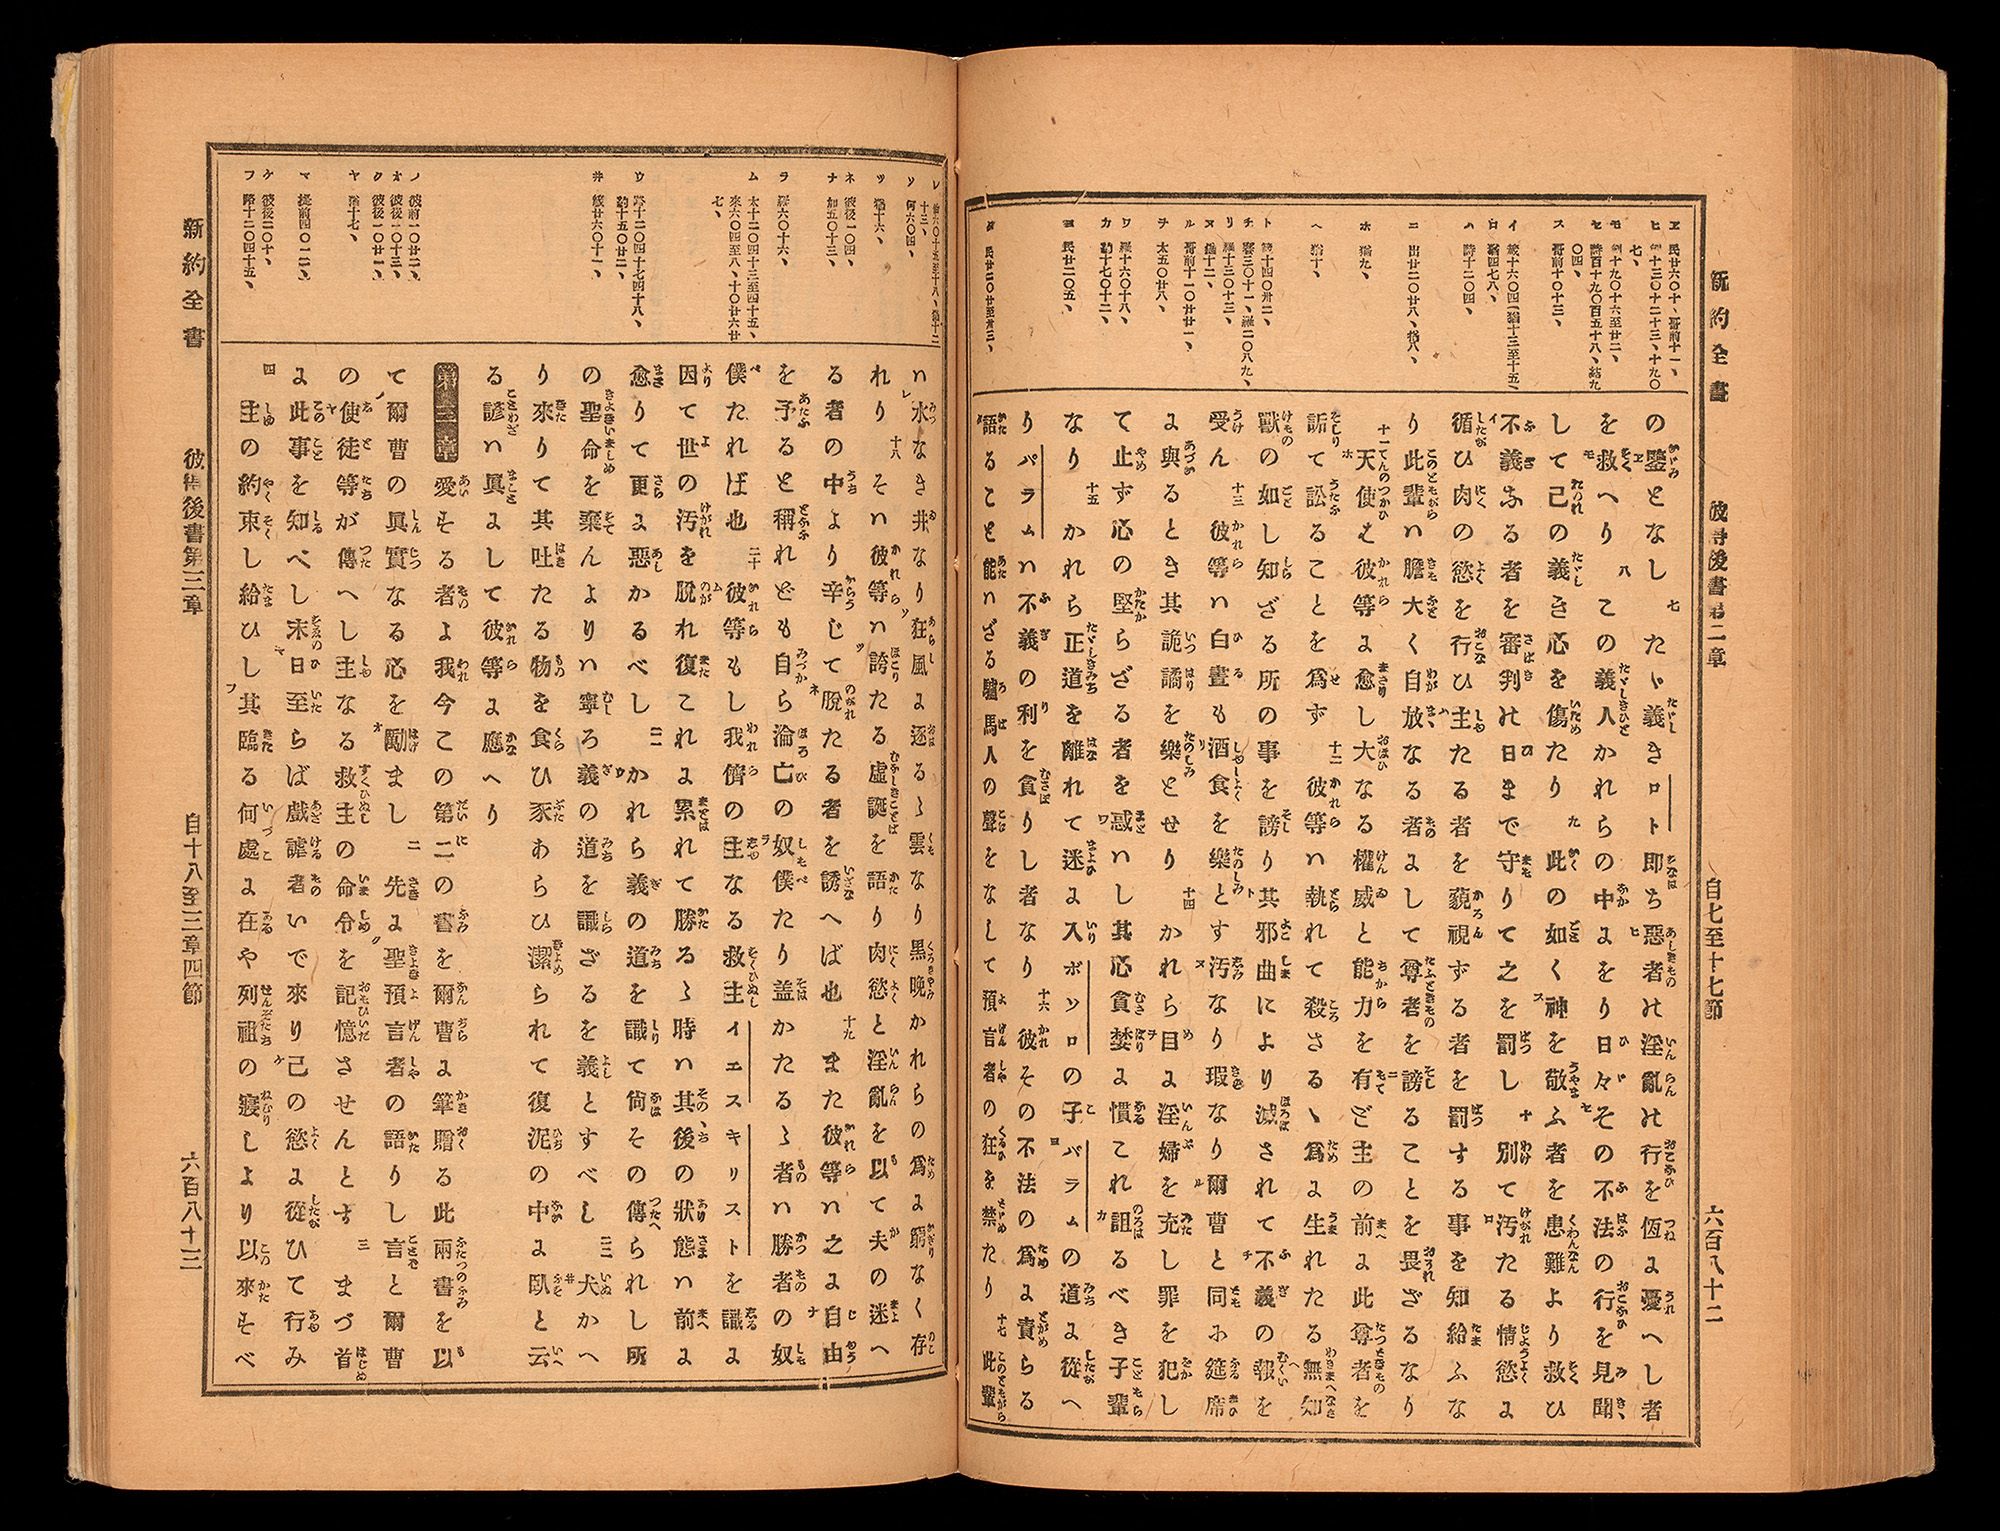 新約全書 彼得後書第二章 自七至十七節 六百八十二
モ 創十九〇十六至廿二、
セ 詩百十九〇百五十八、結九〇四、
ス 哥前十〇十三、
ロ 猶四七八、
ハ 詩十二〇四、
ニ 出廿二〇廿八、猶八、
ホ 猶九、
ヘ 猶十、
リ 羅十三〇十三、
ヌ 猶十二、
ル 哥前十一〇廿一、
ヲ 太五〇廿八、
ワ 羅十六〇十八、
ヨ 民廿二〇五、
タ 民廿二〇廿至卅三、
の鑒となし 七 たゞ義きロト即ち惡者の淫亂の行を恆に憂へし者
を救へり 八 この義人かれらの中にをり日々その不法の行を見聞
して己の義き心を傷たり 九 此の如く神を敬ふ者を患難より救ひ
不義なる者を審判の日まで守りて之を罰し 十 別て汚たる情慾に
循ひ肉の慾を行ひ主たる者を藐視ずる者を罰する事を知給ふな
り此輩ハ膽大く自放なる者にして尊者を謗ることを畏ざるなり
十一 天使ハ彼等に愈し大なる權威と能力を有ど主の前に此尊者を
訴て訟ることを爲ず 十二 彼等ハ執れて殺さるゝ爲に生れたる無知
獸の如し知ざる所の事を謗り其邪曲により滅されて不義の報を
受ん 十三 彼等ハ白晝も酒食を樂とす汚なり瑕なり爾曹と同に筵席
に與るとき其詭譎を樂とせり 十四 かれら目に淫婦を充し罪を犯し
て止ず心の堅らざる者を惑ハし其心貪婪に慣これ詛るべき子輩
なり 十五 かれら正道を離れて迷に入ボソロの子バラムの道に從へ
りバラムハ不義の利を貪りし者なり 十六 彼その不法の爲に責らる
語ること能ハざる驢馬人の聲をなして預言者の狂を禁たり 十七 此輩
新約全書 彼得後書第三章 自十八至三章四節 六百八十三
ソ 何六〇四、
ツ 猶十六、
ネ 彼後一〇四、
ナ 加五〇十三、
ラ 羅六〇十六、
ム 太十二〇四十三至四十五、來六〇四至八、十〇廿六廿七、
ウ 路十二〇四十七四十八、約十五〇廿二、
ヰ 箴廿六〇十一、
ノ 彼前一〇廿二、
オ 彼後一〇十三、
ク 彼後一〇廿一、
ヤ 猶十七、
マ 提前四〇一二、
ケ 彼後二〇十、
フ 路十二〇四十五、
ハ水なき井なり狂風に逐るゝ雲なり黑晩かれらの爲に窮なく存
れり 十八 そハ彼等ハ誇たる虛誕を語り肉慾と淫亂を以て夫の迷へ
る者の中より辛じて脱たる者を誘へば也 十九 また彼等ハ之に自由
を予ると稱れども自ら淪亡の奴僕たり蓋かたるゝ者ハ勝者の奴
僕たれば也 二十 彼等もし我儕の主なる救主イエスキリストを識に
因て世の汚を脱れ復これに累れて勝るゝ時ハ其後の狀態ハ前に
愈りて更に惡かるべし 二一 かれら義の道を識て尙その傳られし所
の聖命を棄んよりハ寧ろ義の道を識ざるを義とすべし 二二 犬かへ
り來りて其吐たる物を食ひ豕あらひ潔られて復泥の中に臥と云
る諺ハ眞にして彼等に應へり
第三章 愛する者よ我今この第二の書を爾曹に筆贈る此兩書を以
て爾曹の眞實なる心を勵まし 二 先に聖預言者の語りし言と爾曹
の使徒等が傳へし主なる救主の命令を記憶させんとす 三 まづ首
に此事を知べし末日至らば戲謔者いで來り己の慾に從ひて行み
四 主の約束し給ひし其臨る何處に在や列祖の寢しより以來すべ